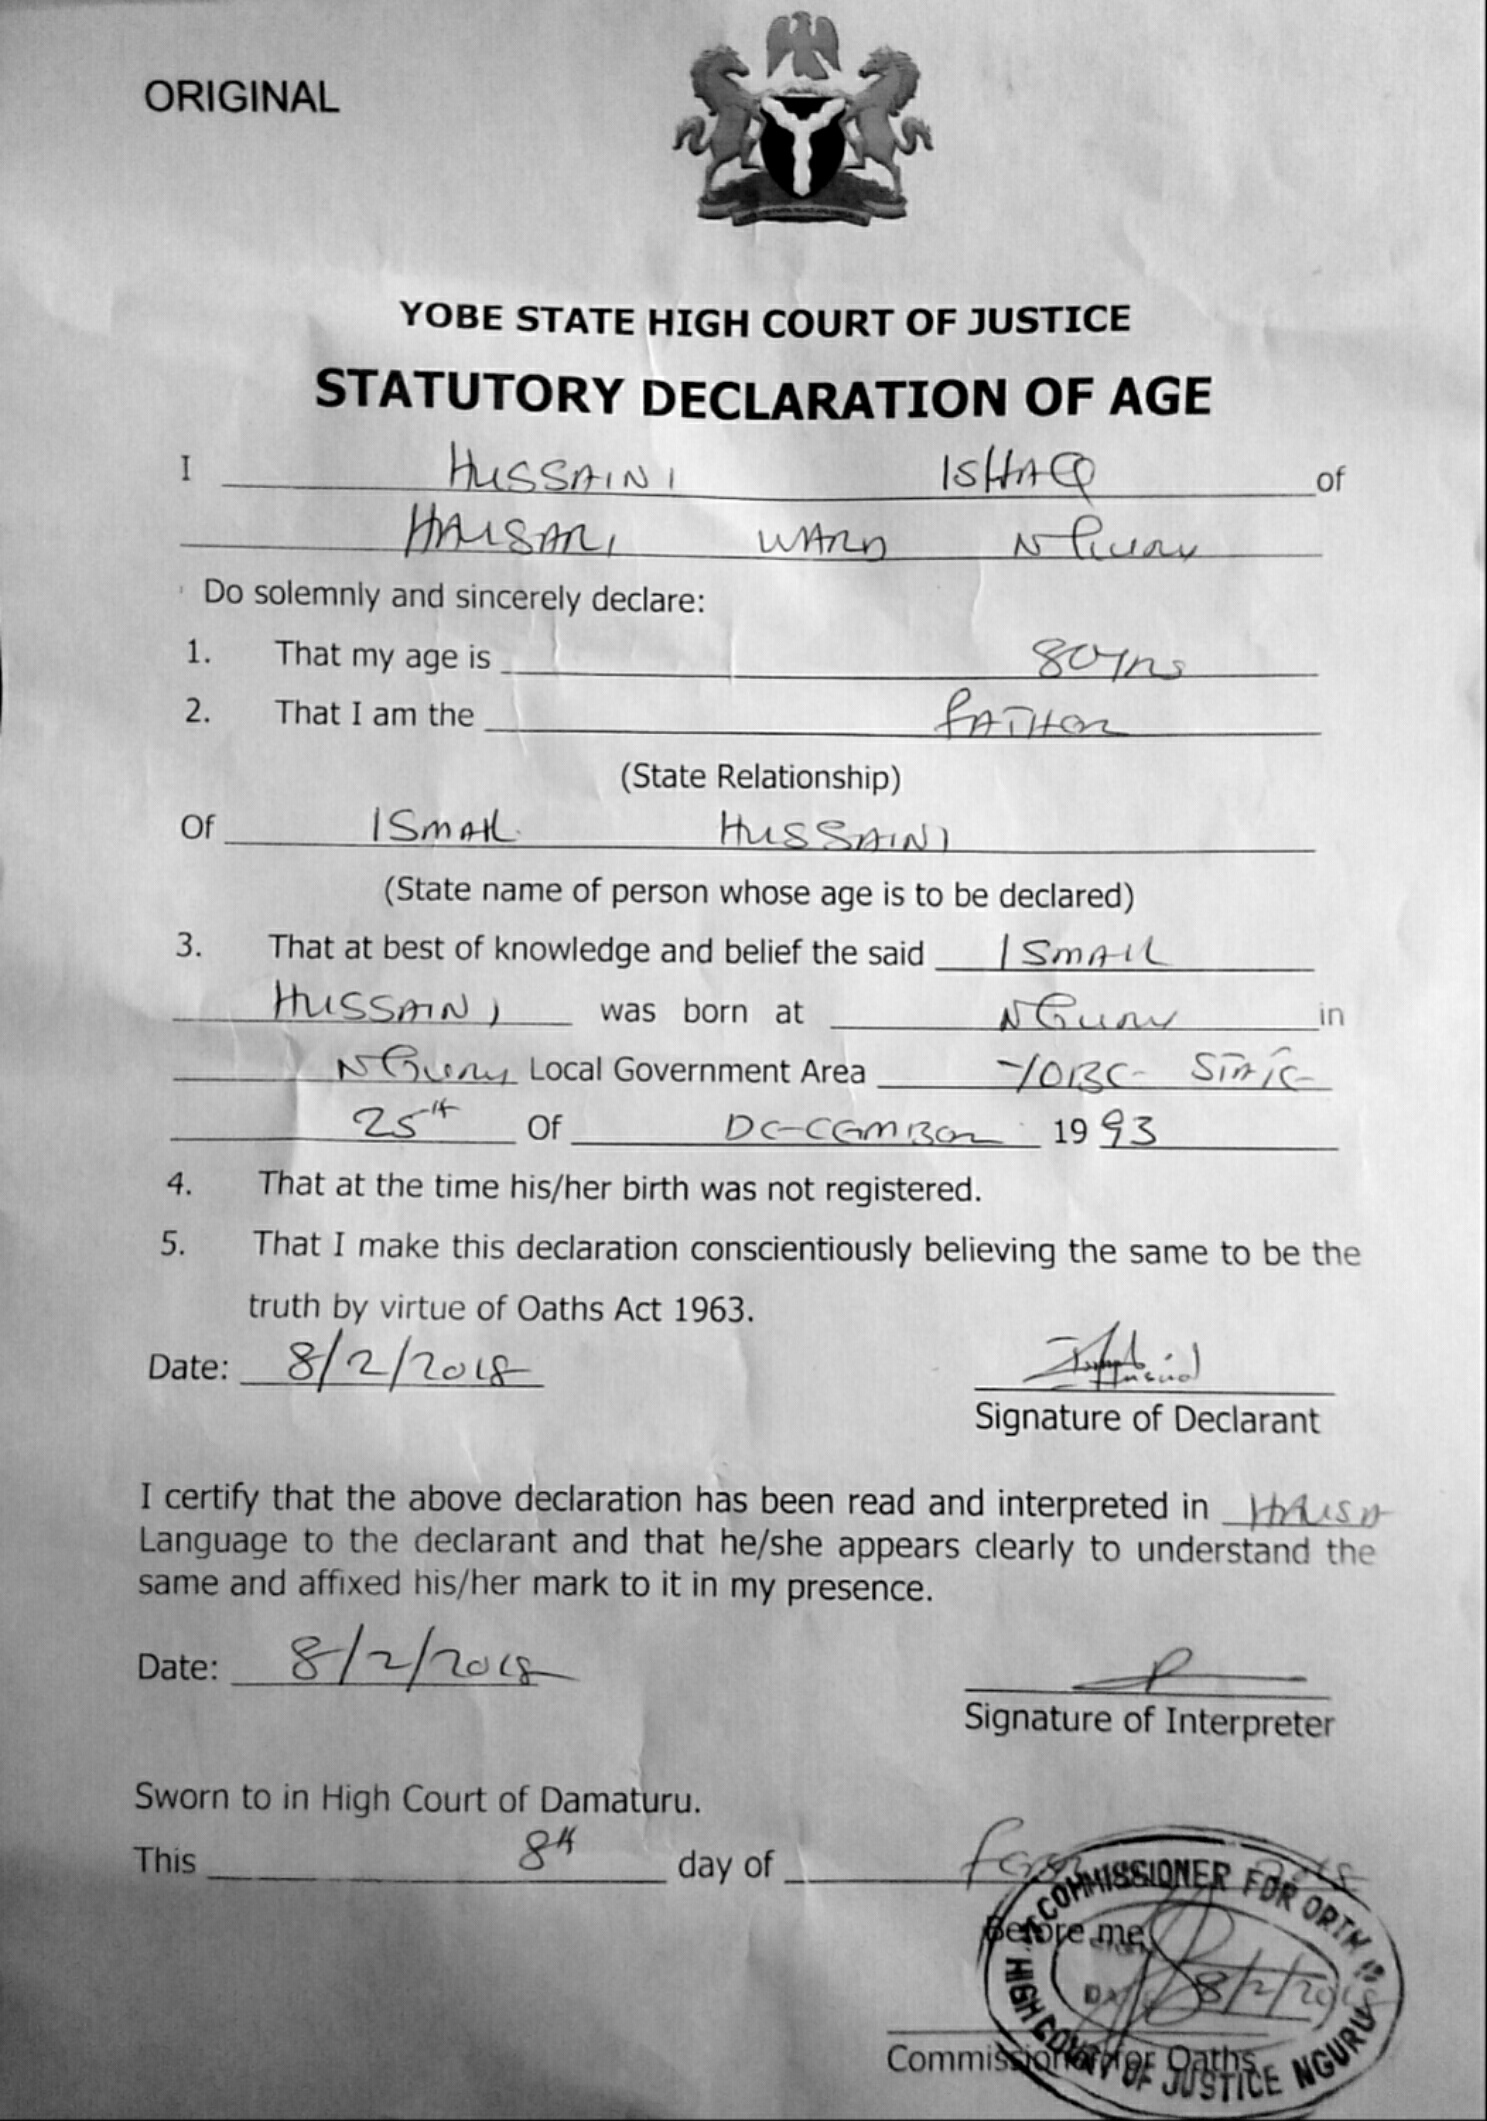 ORIGINAL
YOBE STATE HIGH COURT OF JUSTICE
STATUTORY DECLARATION OF AGE
I HUSSAINI ISHAQ of
HAUSARI WARD NGURU
Do solemnly and sincerely declare:
1. That my age is 80yrs
2. That I am the FATHER
(State Relationship)
Of ISMAIL HUSSAINI
(State name of person whose age is to be declared)
3. That at best of knowledge and belief the said ISMAIL
HUSSAINI was born at NGURU in
NGURU Local Government Area YOBE STATE
25th Of DECEMBER 1993
4. That at the time his/her birth was not registered.
5. That I make this declaration conscientiously believing the same to be the
truth by virtue of Oaths Act 1963.
Date: 8/2/2018
Signature of Declarant
I certify that the above declaration has been read and interpreted in HAUSA
Language to the declarant and that he/she appears clearly to understand the
same and affixed his/her mark to it in my presence.
Date: 8/2/2018
Signature of Interpreter
Sworn to in High Court of Damaturu.
This 8th day of
Before me
Commissioner for Oaths
COMMISSIONER FOR ORTH
8/2/2018
HIGH COURT OF JUSTICE NGURU